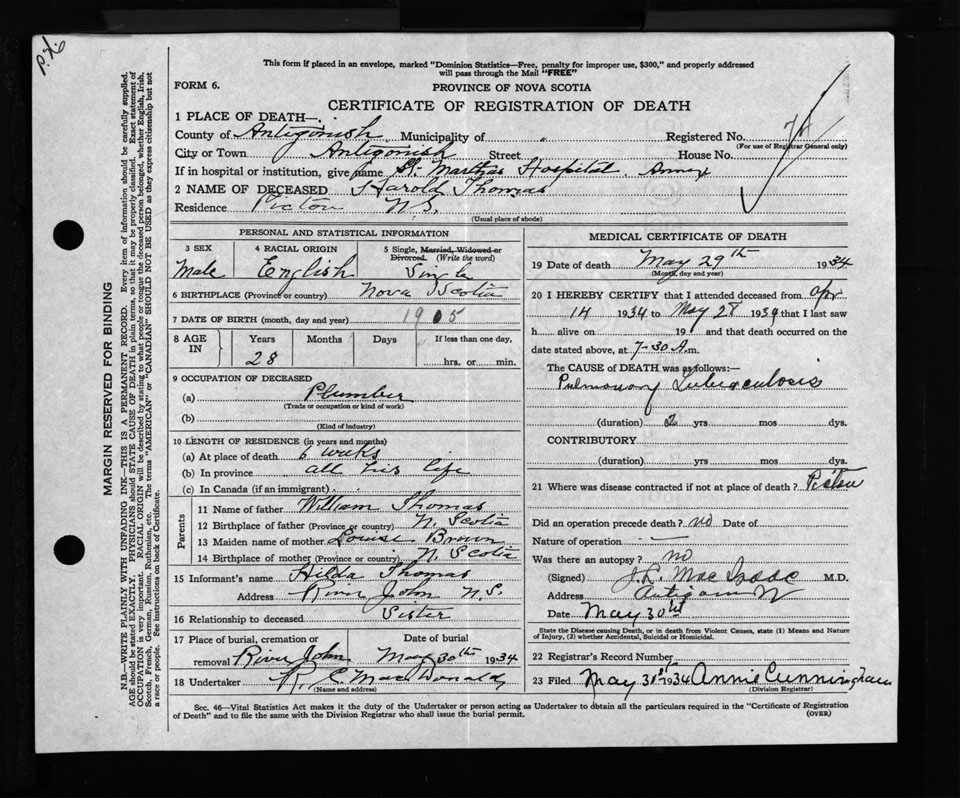 P.X.6
This form if placed in an envelope, marked "Dominion Statistics—Free, penalty for improper use, $300," and properly addressed
will pass through the Mail "FREE"
FORM 6.
PROVINCE OF NOVA SCOTIA
CERTIFICATE OF REGISTRATION OF DEATH
1 PLACE OF DEATH—
County of Antigonish Municipality of " Registered No. 74
(For use of Registrar General only)
City or Town Antigonish Street House No.
If in hospital or institution, give name St. Marthas Hospital. Annex
2 NAME OF DECEASED Harold Thomas
Residence Pictou N.S.
(Usual place of abode)
PERSONAL AND STATISTICAL INFORMATION
3 SEX 4 RACIAL ORIGIN 5 Single, Married, Widowed or Divorced. (Write the word)
Male English Single
6 BIRTHPLACE (Province or country) Nova Scotia
7 DATE OF BIRTH (month, day and year) 1905
8 AGE IN Years Months Days If less than one day,
28 hrs. or min.
9 OCCUPATION OF DECEASED
(a) Plumber
(Trade or occupation or kind of work)
(b)
(Kind of industry)
10 LENGTH OF RESIDENCE (in years and months)
(a) At place of death 6 weeks
(b) In province all his life
(c) In Canada (if an immigrant)
Parents
11 Name of father William Thomas
12 Birthplace of father (Province or country) N. Scotia
13 Maiden name of mother Louise Brown
14 Birthplace of mother (Province or country) N. Scotia
15 Informant's name Hilda Thomas
Address River John N.S.
16 Relationship to deceased Sister
17 Place of burial, cremation or removal River John Date of burial May 30th 1934
18 Undertaker R. C. MacDonald
(Name and address)
MEDICAL CERTIFICATE OF DEATH
19 Date of death May 29th 1934
(Month, day and year)
20 I HEREBY CERTIFY that I attended deceased from Apr
14 1934 to May 28 1934 that I last saw
h alive on 19 and that death occurred on
date stated above, at 7-30 A.m.
The CAUSE of DEATH was as follows:—
Pulmonary Tuberculosis
(duration) 2 yrs mos dys.
CONTRIBUTORY
(duration) yrs mos dys.
21 Where was disease contracted if not at place of death? Pictou
Did an operation precede death? no Date of
Nature of operation —
Was there an autopsy? no
(Signed) J.L. MacIsaac M.D.
Address
Date May 30th
State the Disease causing Death, or in death from Violent Causes, state (1) Means and Nature
of Injury, (2) whether Accidental, Suicidal or Homicidal.
22 Registrar's Record Number
23 Filed May 31st 1934 Annie Cunningham
(Division Registrar)
Sec. 46—Vital Statistics Act makes it the duty of the Undertaker or person acting as Undertaker to obtain all the particulars required in the "Certificate of Registration
of Death" and to file the same with the Division Registrar who shall issue the burial permit. (OVER)
MARGIN RESERVED FOR BINDING
N.B.—WRITE PLAINLY WITH UNFADING INK—THIS IS A PERMANENT RECORD. Every item of information should be carefully supplied.
AGE should be stated EXACTLY. PHYSICIANS should STATE CAUSE OF DEATH in plain terms, so that it may be properly classified. Exact statement of
OCCUPATION is very important. RACIAL ORIGIN will be described by stating to what people or tongue the deceased person belonged, whether English, Irish,
Scotch, French, German, Russian, Ruthenian, etc. The terms "AMERICAN" or "CANADIAN" SHOULD NOT BE USED as they express citizenship but not
a race or people. See instructions on back of Certificate.